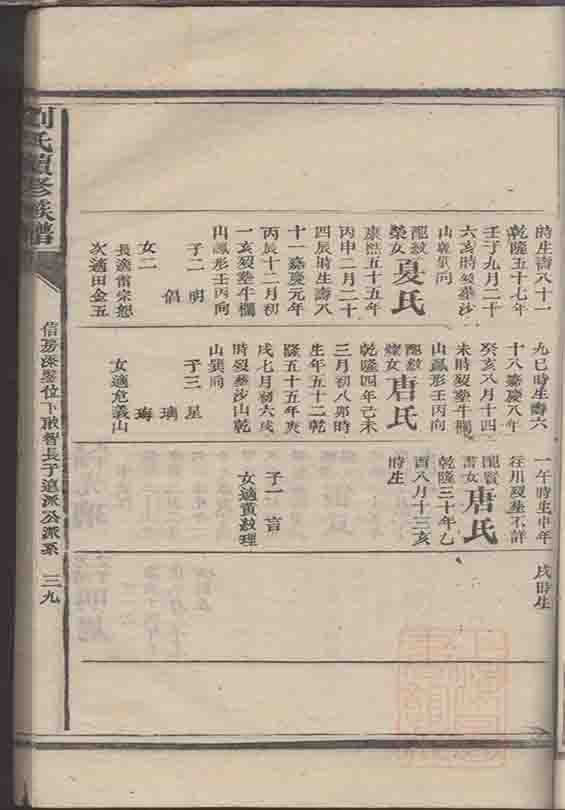 時生壽八十一
乾隆五十七年
壬子九月二十
六亥時歿葬沙
山巽乾向
配紋
榮女
夏氏
康熙五十五年
丙申二月二十
四辰時生壽八
十一嘉慶元年
丙辰十二月初
一亥歿葬牛欄
山鳳形壬丙向
子二 明
倡
女二
長適雷宗恕
次適田金五
九巳時生壽六
十八嘉慶八年
癸亥八月十四
未時歿葬牛欄
山鳳形壬丙向
配紋
燦女
唐氏
乾隆四年己未
三月初八卯時
生年五十二乾
隆五十五年庚
戌七月初六戌
時歿葬沙山乾
山巽向
子三 星
璃
女適危義山
一午時生中年
往川歿葬不詳
配賢
書女
唐氏
乾隆三十年乙
酉八月十三亥
時生
子一 言
女適黃啟理
戌時生
劉氏續修族譜
信房深鑒位下啟智長子遠派公派系 三九